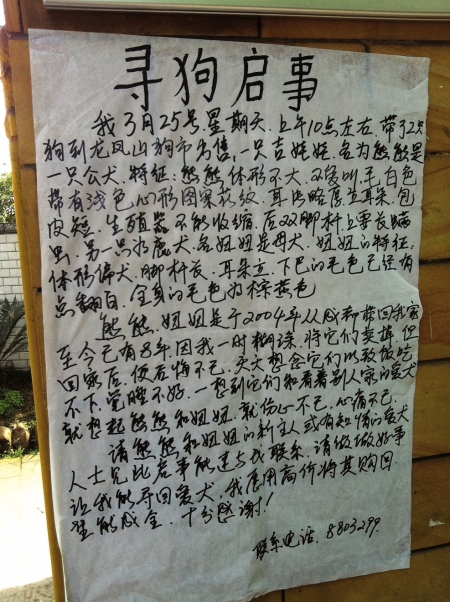 寻狗启事
我3月25号.星期天.上午10点左右.带了2只
狗到龙凤山狗市为售,一只吉娃娃.名为熊熊是
一只公犬.特征:熊熊体形不大.不爱叫.毛白色
带有浅色心形图案花纹.耳 略厚立耳朵.包
皮短.生殖器不能收缩.后双脚杆上季长螨
虫.另一只为鹿犬.名妞妞是母犬.妞妞的特征.
体形偉犬.脚杆长.耳朵立.下巴的毛色已经有
点翻白.全身的毛色为棕黄色
熊熊.妞妞是于2004年从成都带回我家
至今已有8年.因我一时糊涂.将它们卖掉.但
回家后.便后悔不已.天天想念它们以致饭吃
不下.觉睡不好.一想到它们和看着别人家的爱犬
就想起熊熊和妞妞.就伤心不已.心痛不已.
请熊熊和妞妞的新主人或有知情的爱犬
人士见此启事能速与我联系.请做做好事
让我能寻回爱犬.我愿用高价将其购回.
望能成全.十分感谢!
联系电话.8803299.